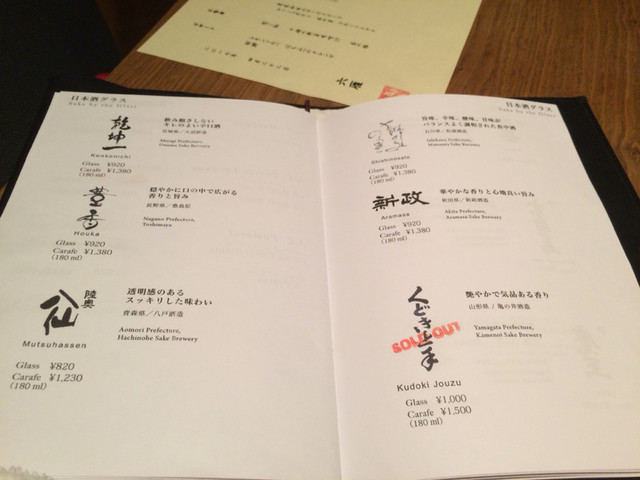 日本酒グラス
Sake by the Glass
乾坤一
Kenkonichi
飲み飽きしない
キレのよい辛口酒
宮城県／大沼酒造
Miyagi Prefecture,
Oonuma Sake Brewery
Glass ¥920
Carafe ¥1,380
(180 ml)
豊香
Houka
穏やかに口の中で広がる
香りと旨み
長野県／豊島屋
Nagano Prefecture,
Toshimaya
Glass ¥920
Carafe ¥1,380
(180 ml)
陸奥
八仙
Mutsuhassen
透明感のある
スッキリした味わい
青森県／八戸酒造
Aomori Prefecture,
Hachinohe Sake Brewery
Glass ¥820
Carafe ¥1,230
(180 ml)
日本酒グラス
Sake by the Glass
Shishinosato
旨味、辛味、酸味、甘味が
バランスよく調和された食中酒
石川県／松浦酒造
Ishikawa Prefecture,
Matsuura Sake Brewery
Glass ¥920
Carafe ¥1,380
(180 ml)
新政
Aramasa
華やかな香りと心地良い旨み
秋田県／新政酒造
Akita Prefecture,
Aramasa Sake Brewery
Glass ¥920
Carafe ¥1,380
(180 ml)
くどき上手
SOLD OUT
Kudoki Jouzu
艶やかで気品ある香り
山形県／亀の井酒造
Yamagata Prefecture,
Kamenoi Sake Brewery
Glass ¥1,000
Carafe ¥1,500
(180 ml)